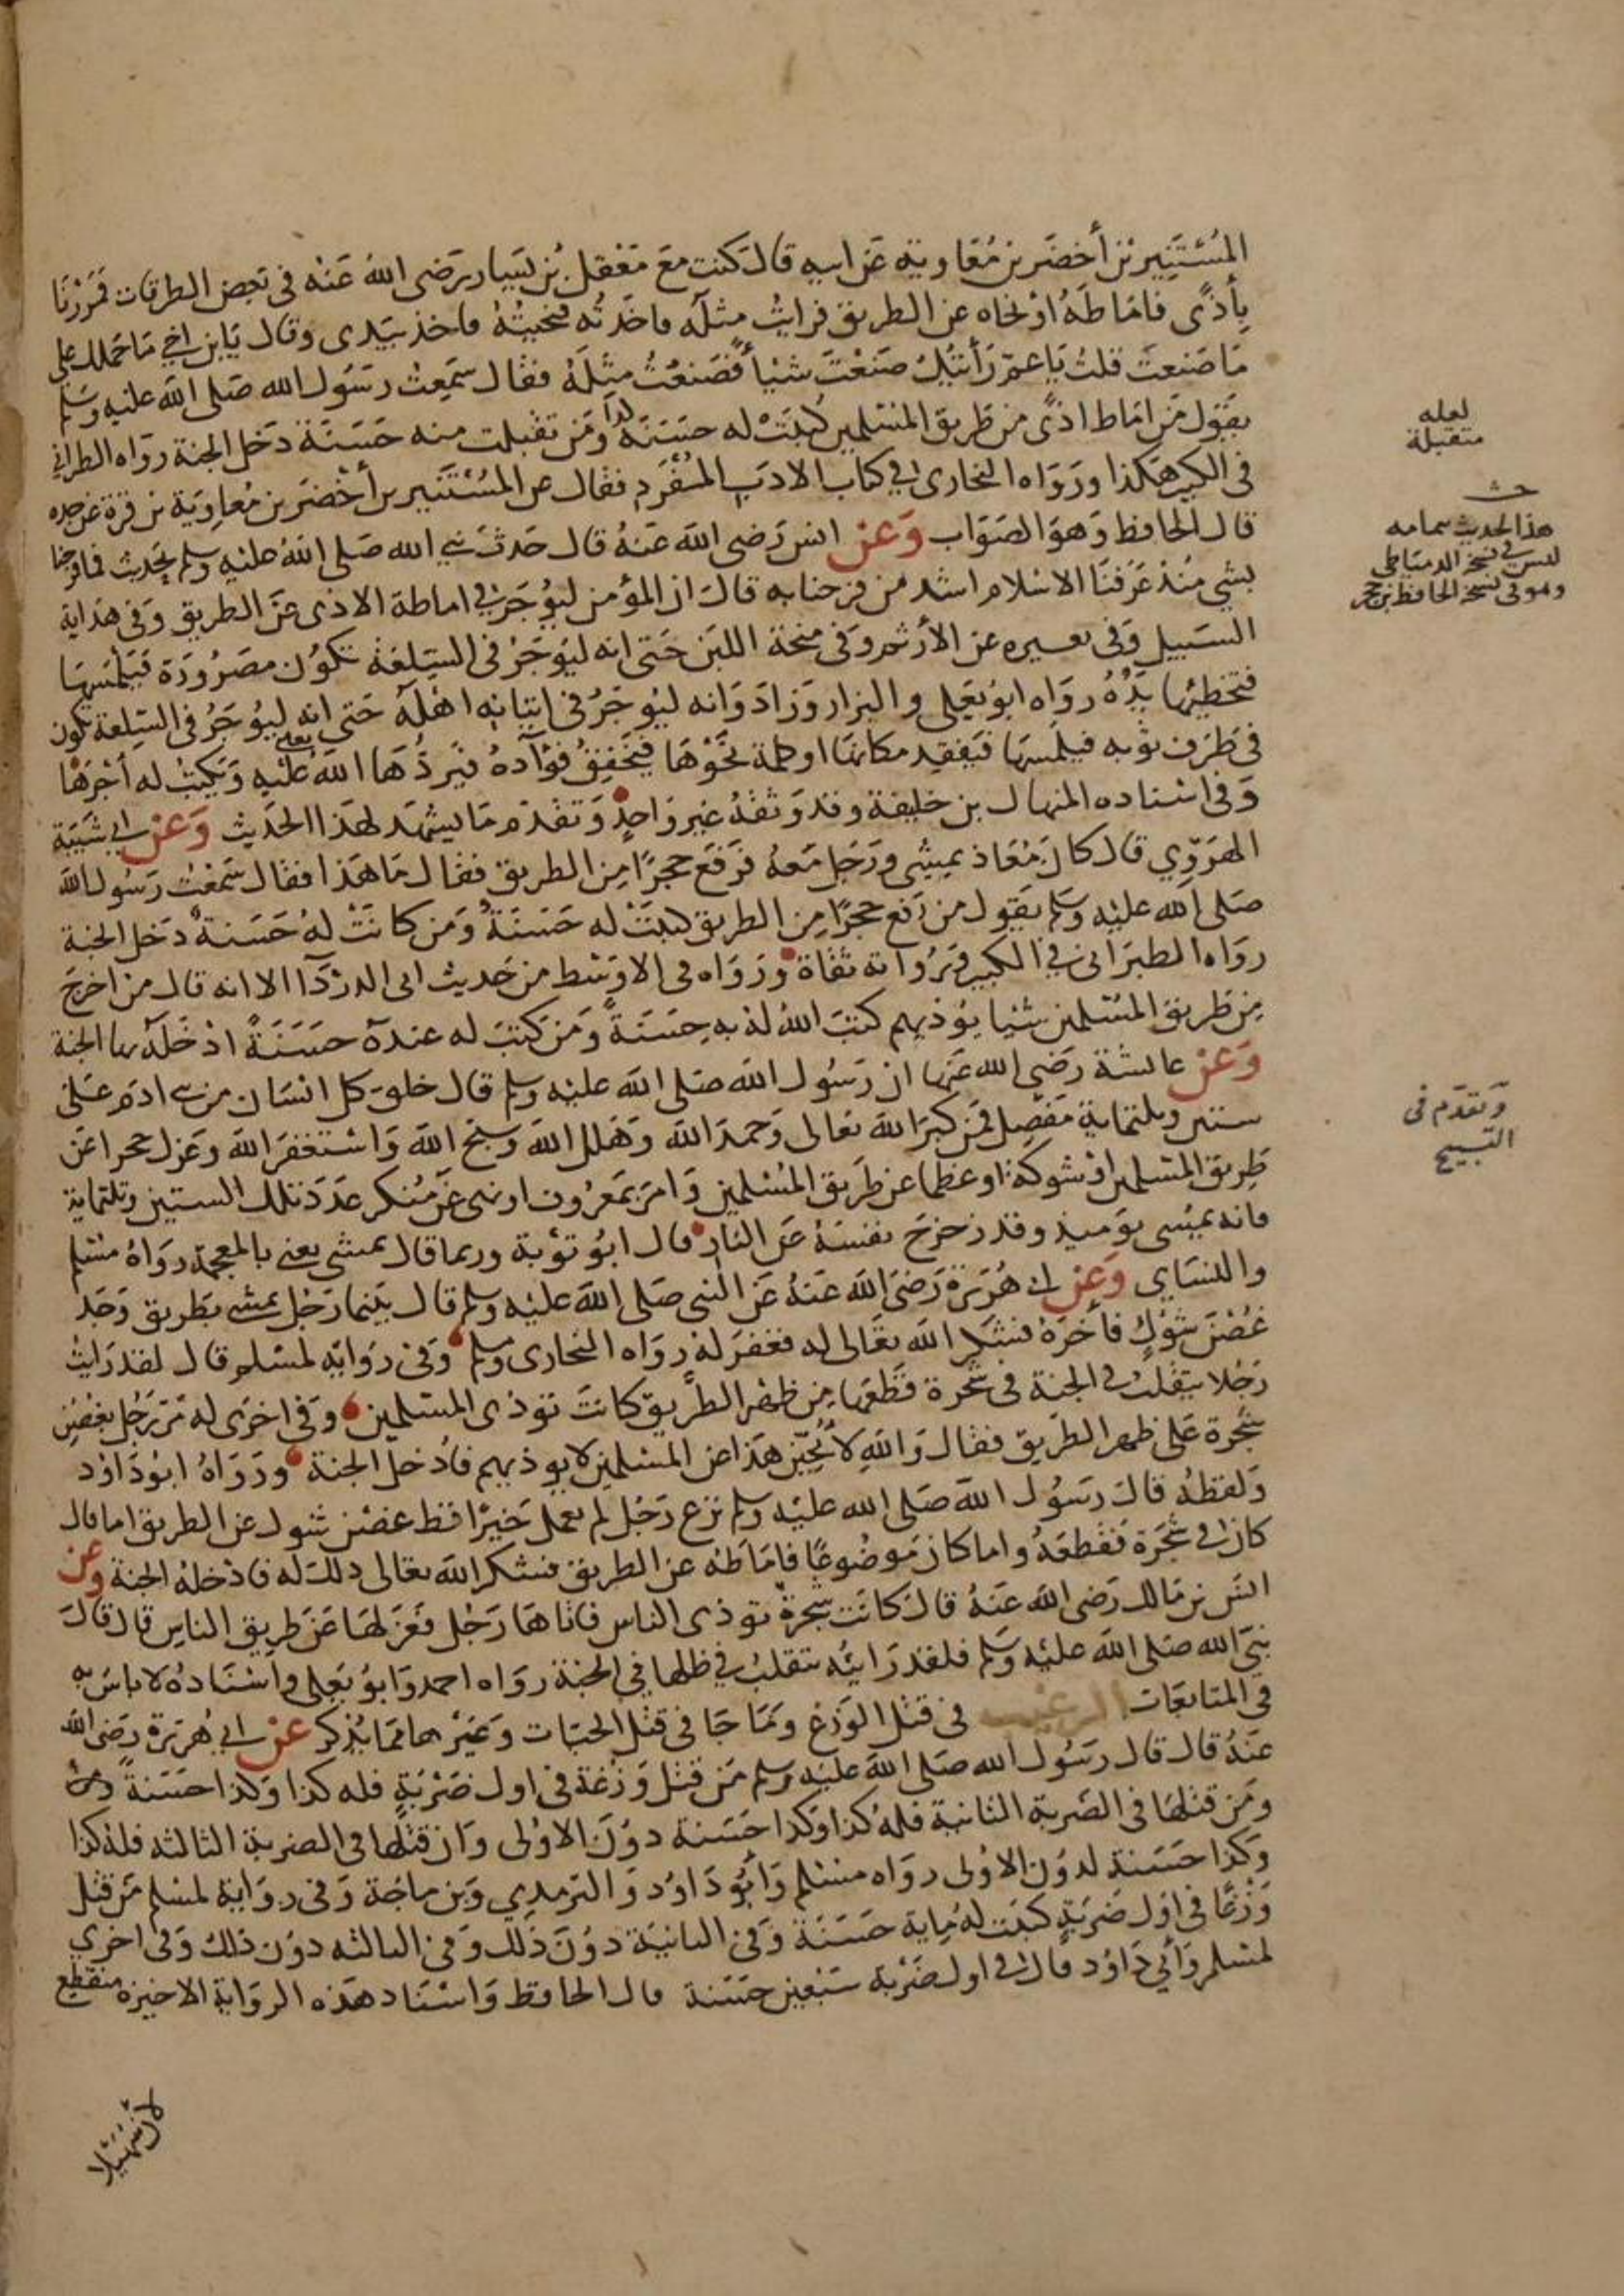 المُسْتَنِير بن أخضَر بن مُعَاوية عَن ابيه قال كنت معَ مَعْقل بن يَسَار رَضى اللهُ عَنْه فى بَعض الطرقات فَمَرْرنَا
بِأذًى فامَاطَهُ اوْ نحاه عن الطريق فرايتُ مثلَه فاخَذتُه فنحيتُهُ فاخذ بيَدى وقال يَابن اخى مَا حَملك على
مَا صَنعتَ قلتُ يَا عمّ رَأيتُكَ صَنعْتَ شيْأ فصَنعْتُ مِثلَهُ فقال سَمِعتُ رسَول الله صَلى الله عليه وسَلم
يقول مَن امَاط اذىً من طَريق المسْلمين كُتِبَتْ له حسَنَة ومَن تقبلت منه حَسَنَة دَخل الجنة روَاه الطبرانى
كذا
فى الكبير هَكذا ورَوَاه البخارى فى كتاب الادَب المُفْرَد فقال عن المُسْتَنير بن أخْضَر بن مُعاوِيَة بن قرة عن جده
قال الحافظ وَهوَ الصَوَاب وَعَن انس رَضى الله عَنهُ قال حَدثَ نبى الله صَلى اللهُ عليه وسلم بحَديث فما فرحنا
بشى مُنذ عَرَفنَا الاسْلام اشد من فرحنا به قال ان المؤمن ليُؤجَر فى اماطة الاذى عَن الطريق وَفى هدَاية
السَبيل وَفى تعبيره عن الأرثم وَفى منحة اللبَن حَتى انه ليُؤجَرُ فى السِلعَة تكوُن مصَرُورَة فَيَلمسُهَا
فتخطيُها يَدُهُ روَاه ابوُ يَعلى والبزار وَزادَ وَانه ليُؤجَرُ فى اتيانِه اهْلَه حَتى انه ليُؤجَرُ فى السِلعة تكون
فى طَرَف ثوُبه فيلمسُهَا فيَفقِد مكانهَا او كلمة نحَوْهَا فيَخفِقُ فؤادهُ فيَردُّهَا الله تعالى عليْه وَيَكتبُ له أجْرَهَا
وَفى اسْناده المنهال بن خليفة وقد وَثقهُ غير وَاحدٍ وَتقدّم مَا يشهَد لهَذا الحَديث وَعَن ابى شَيبَة
المهَروّي قال كان مُعَاذ يمشِى ورَجل مَعهُ فرَفعَ حجرًا مِن الطريق فقال مَا هَذا فقال سَمعْت رَسُول الله
صَلى الله عليْه وَسَلم يَقول من رَفع حجرًا مِن الطريق كتبَتْ له حَسَنَةٌ وَمَن كانَتْ لهُ حَسَنةٌ دَخل الجنة
روَاه الطبَرَانى فى الكبير ورُوَاته ثقاة ورَوَاه فى الاوْسَط من حَديث ابى الدَردَآ الا انه قال من اخرجَ
مِن طَريق المسْلمين شيْا يؤذيهم كتبَ اللهُ لهُ بهِ حَسَنَةً وَمَن كتبَ له عندَه حَسَنَةً ادْخَلَه بها الجنة
وَعَن عائشة رَضى الله عَنها ان رَسُول الله صَلى الله عليْه وسلم قال خلقَ كل انسَان من بنى ادمَ عَلى
ستين وثلثماية مَفصِل فمَن كبرَ الله تعَالى وَحمدَ الله وَهَلل الله وَسَبح الله وَاسْتغفرَ الله وَعزل حجرا عَن
طَريق المسْلمين او شوكة او عظما عن طَريق المُسْلمين وَامرَ بمَعرُوف او نهى عَن مُنكر عدَدَ تلك الستين وثلثماية
فانه يمشِى يوَميذ وقد زحزحَ نفسَهُ عَن النار قال ابوُ توْبة وربما قال يمشى يعنى بالمعجمة رَوَاهُ مسْلم
والنسَاى وَعَن ابى هُرَيرَة رَضىَ الله عَنهُ عَن النبى صَلى الله عليْه وسلم قال بَينما رَجُل يمشى بطريق وَجَد
غُصْنَ شوْكٍ فأخرَهُ فشكَر الله تعَالى له فغفرَ لهُ روَاه البخارى ومسلم وَفى رواية لمسْلم قال لقد رَايتُ
رَجُلا يتقلبُ فى الجنة فى شجَرة قطَعَها مِن ظهر الطريق كانتَ توذى المسلمين وَفى اخرَى له مَرّ رَجُل بغصْن
شجَرة عَلى ظهر الطريق فقال وَاللهِ لأنحّيَن هَذا عَن المسْلمين لا يوذيهم فأدْخل الجنة ورَوَاهُ ابوُ دَاوُد
وَلفظهُ قال رَسُول الله صَلى الله عليْه وسلم نزع رَجُل لم يعمل خَيرًا قط غصْن شوك عن الطريق اما قال
كان فى شجَرة فقطعَهُ واما كان مَوضُوعًا فامَاطَه عن الطريق فشكر الله تعَالى ذلك له فادْخلهُ الجنة وعن
انسَ بن مَالك رَضى الله عَنهُ قال كانَت شجرةٌ توذى الناس فاتاهَا رَجُل فعَزلهَا عَن طَريق الناس قال قالَ
نبيّ الله صَلى الله عليْه وَسَلم فلقد رَايتُه يتقلبُ فى ظلها فى الجنة روَاه احمد وَابوُ يَعلى واسْنَادُه لا باسَ به
فى المتابعَات الترغيب فى قتل الوَزغ وَمَا جَا فى قتل الحيَات وَغيْرهما ممَا يُذكر عَن ابى هُرَيرَة رَضى الله
عَنهُ قال قال رَسُول الله صَلى الله عليْه وسلم مَن قتل وَزغة فى اول ضَرْبَةٍ فله كذا وَكذا حَسَنةً ومن
ومَن قتلهَا فى الضَربة الثانية فلهُ كذا وَكذا حَسَنة دوُنَ الاوُلى وَان قتلهَا فى الضربة الثالثه فلهُ كذا
وَكذا حَسَنة لدوُن الاوُلى روَاه مسْلم وَأبُو دَاوُد وَالترمدِي وَبن مَاجَة وَفى روَاية لمسْلم مَن قتل
وَزغًا فى اوَل ضَربَةٍ كتبَت لهُ مِاية حَسَنَة وَفى الثانيَة دوُنَ ذلك وَفى الثالثه دوُن ذلك وَفى اخرى
لمسْلم وَأبي دَاوُد قال فى اول ضَرْبة سَبْعين حَسَنة قال الحافظ وَاسْنَاد هَذه الروَاية الاخيرَة منقطع
لعله
متقبلة
هذا الحديث بتمامه
ليس فى نسخة الدمياطى
وهو فى نسخة الحافظ بن حجر
وَتقدّم فى
التسبيح
لان سُهَيلا